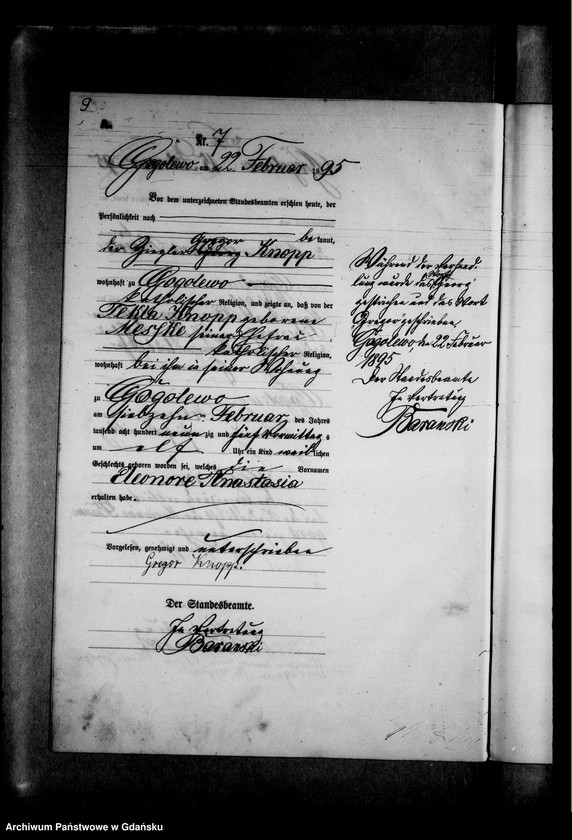 9
Nr. 7
Gogolewo am 22 Februar 1895
Vor dem unterzeichneten Standesbeamten erschien heute, der
Persönlichkeit nach
bekannt,
Gregor
der Ziegler Georg Knopp
wohnhaft zu Gogolewo
katholischer Religion, und zeigte an, daß von der
Tekla Knopp geborene
Meschke seiner Ehefrau
katholischer Religion,
wohnhaft bei ihm in seiner Wohnung
zu Gogolewo
am siebzehn Februar des Jahres
tausend acht hundert neunzig und fünf Vormittags
um elf Uhr ein Kind weiblichen
Geschlechts geboren worden sei, welches die Vornamen
Eleonore Anastasia
erhalten habe.
Vorgelesen, genehmigt und unterschrieben
Gregor Knopp.
Der Standesbeamte.
In Vertretung
Baranski
Während der Verhand-
lung wurde das Wort "Georg"
gestrichen und das Wort
"Gregor" geschrieben.
Gogolewo, den 22 Februar
1895
Der Standesbeamte
In Vertretung
Baranski
Archiwum Państwowe w Gdańsku